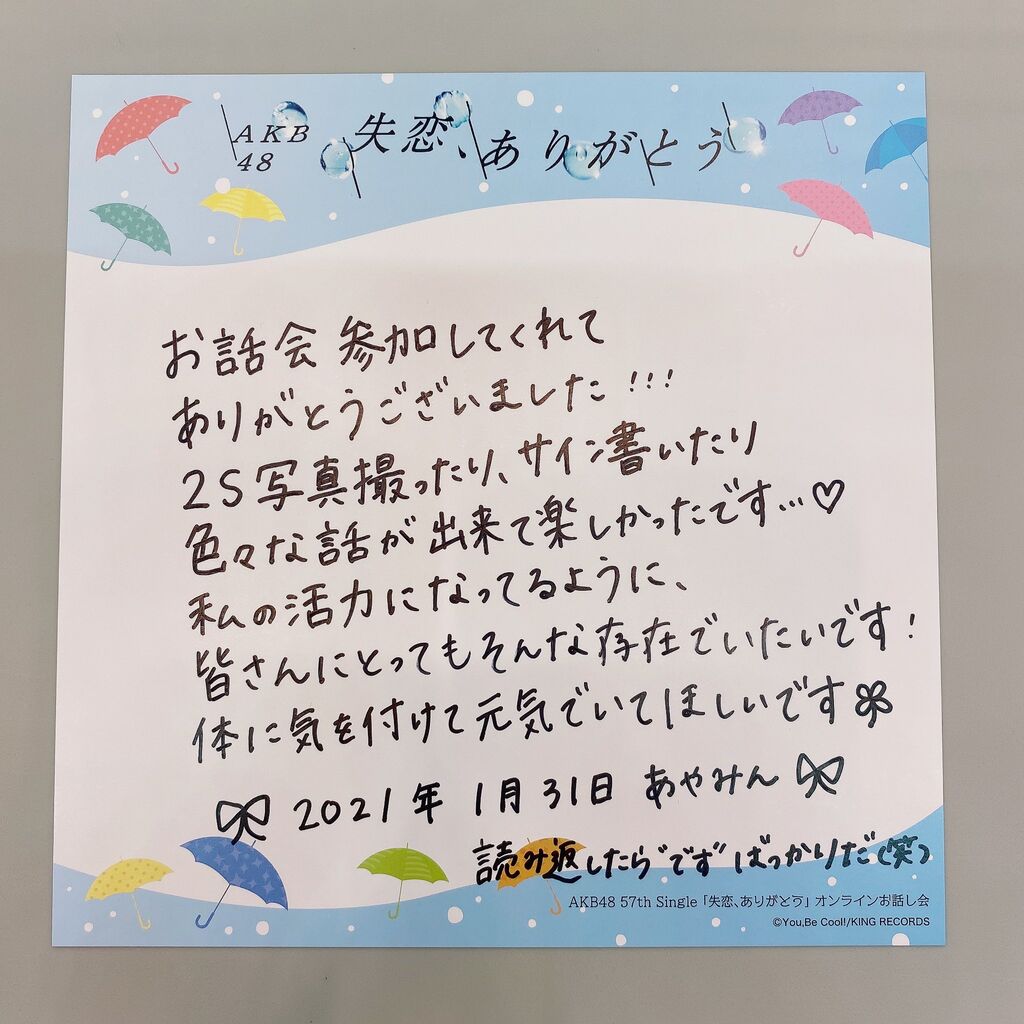 AKB
48
失恋、ありがとう
お話会 参加してくれて
ありがとうございました!!!
2S写真撮ったり、サイン書いたり
色々な話が出来て楽しかったです…♡
私の活力になってるように、
皆さんにとってもそんな存在でいたいです!
体に気を付けて元気でいてほしいです
2021年 1月31日 あやみん
読み返したら"です"ばっかりだ(笑)
AKB48 57th Single「失恋、ありがとう」オンラインお話し会
©You,Be Cool!/KING RECORDS